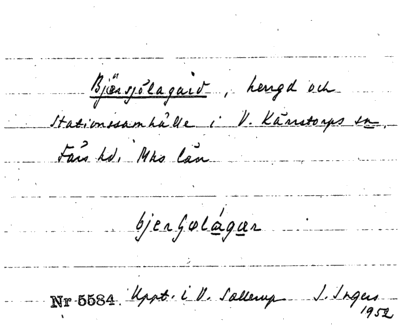 Bjärsjölagård, hengd och
Stationssamhälle i V. Kärrstorps sn,
Färs hd, Mhs län
bjerʃœlágær
Nr 5584. Uppt. i V. Sallerup S. Ingers
1952